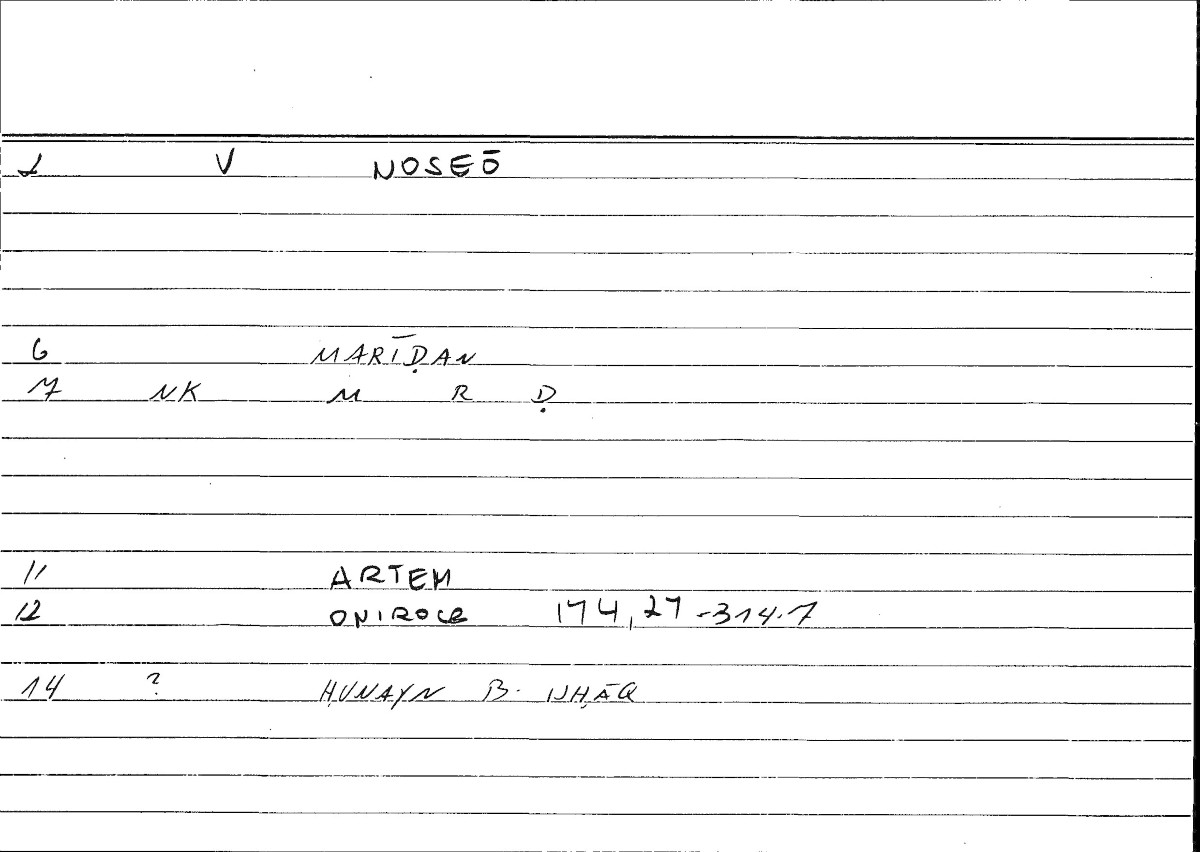 1 V NOSEŌ
6 MARĪḌAN
7 NK M R Ḍ
11 ARTEM
12 ONIROCR 174,27-314.7
14 ? ḤUNAYN B. ISḤĀQ